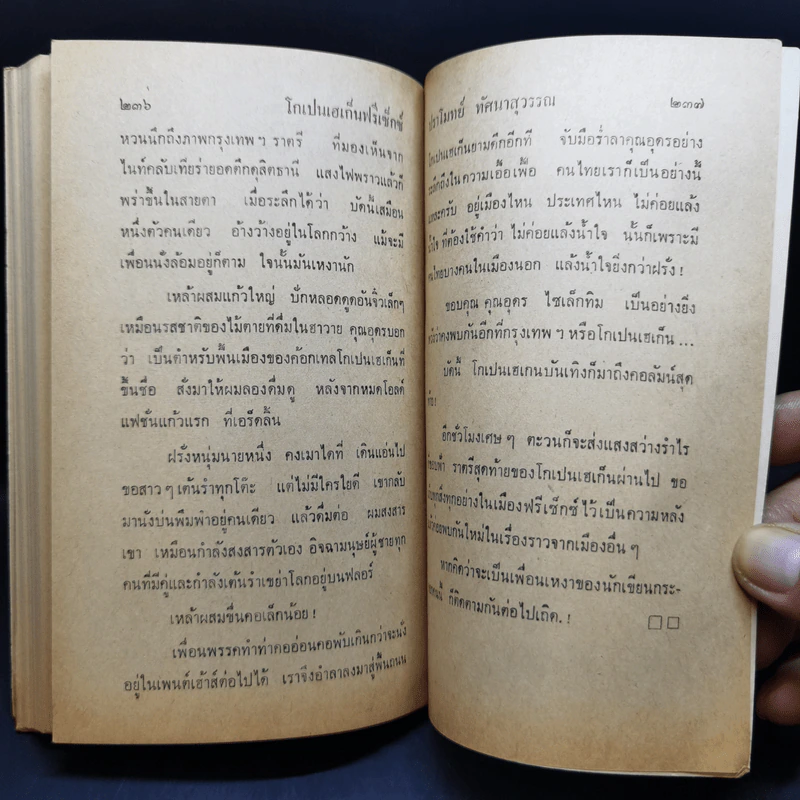 ๒๓๖ โกเปนเฮเก็นฟรีเซ็กซ์
หวนนึกถึงภาพกรุงเทพฯ ราตรี ที่มองเห็นจาก
ไนท์คลับเทียร่ายอดตึกดุสิตธานี แสงไฟพราวแล้วก็
พร่าขึ้นในสายตา เมื่อระลึกได้ว่า บัดนี้เสมือน
หนึ่งตัวคนเดียว อ้างว้างอยู่ในโลกกว้าง แม้จะมี
เพื่อนนั่งล้อมอยู่ก็ตาม ใจนั้นมันเหงานัก
เหล้าผสมแก้วใหญ่ ปักหลอดดูดอันจิ๋วเล็กๆ
เหมือนรสชาติของไม้ตายที่ดื่มในฮาวาย คุณอุดรบอก
ว่า เป็นตำหรับพื้นเมืองของค้อกเทลโกเปนเฮเก็นที่
ขึ้นชื่อ สั่งมาให้ผมลองดื่มดู หลังจากหมดโอลด์
แฟชั่นแก้วแรก ที่เอร์ดลิ้น
ฝรั่งหนุ่มนายหนึ่ง คงเมาได้ที่ เดินแอ่นไป
ขอสาวๆ เต้นรำทุกโต๊ะ แต่ไม่มีใครไยดี เขากลับ
มานั่งบ่นพึมพำอยู่คนเดียว แล้วดื่มต่อ ผมสงสาร
เขา เหมือนกำลังสงสารตัวเอง อิจฉามนุษย์ผู้ชายทุก
คนที่มีคู่และกำลังเต้นรำเขย่าโลกอยู่บนฟลอร์
เหล้าผสมขึ้นคอเล็กน้อย !
เพื่อนพรรคทำท่าคออ่อนคอพับเกินกว่าจะนั่ง
อยู่ในเพนต์เฮ้าส์ต่อไปได้ เราจึงอำลาลงมาสู่พื้นถนน
ปราโมทย์ ทัศนาสุวรรณ ๒๓๗
โกเปนเฮเก็นยามดึกอีกที จับมือร่ำลาคุณอุดรอย่าง
ระลึกถึงในความเอื้อเฟื้อ คนไทยเราก็เป็นอย่างนี้
แหละครับ อยู่เมืองไหน ประเทศไหน ไม่ค่อยแล้ง
น้ำใจ ที่ต้องใช้คำว่า ไม่ค่อยแล้งน้ำใจ นั้นก็เพราะมี
คนไทยบางคนในเมืองนอก แล้งน้ำใจยิ่งกว่าฝรั่ง !
ขอบคุณ คุณอุดร ไซเล็กทิม เป็นอย่างยิ่ง
หวังว่าคงพบกันอีกที่กรุงเทพฯ หรือโกเปนเฮเก็น ...
บัดนี้ โกเปนเฮเกนบันเทิงก็มาถึงคอลัมน์สุด
อีกชั่วโมงเศษๆ ตะวันก็จะส่งแสงสว่างรำไร
ขอบฟ้า ราตรีสุดท้ายของโกเปนเฮเก็นผ่านไป ขอ
ทุกสิ่งทุกอย่างในเมืองฟรีเซ็กซ์ไว้เป็นความหลัง
พบกันใหม่ในเรื่องราวจากเมืองอื่นๆ
หากคิดว่าจะเป็นเพื่อนเหงาของนักเขียนกระ-
คนนี้ ก็ติดตามกันต่อไปเถิด. !